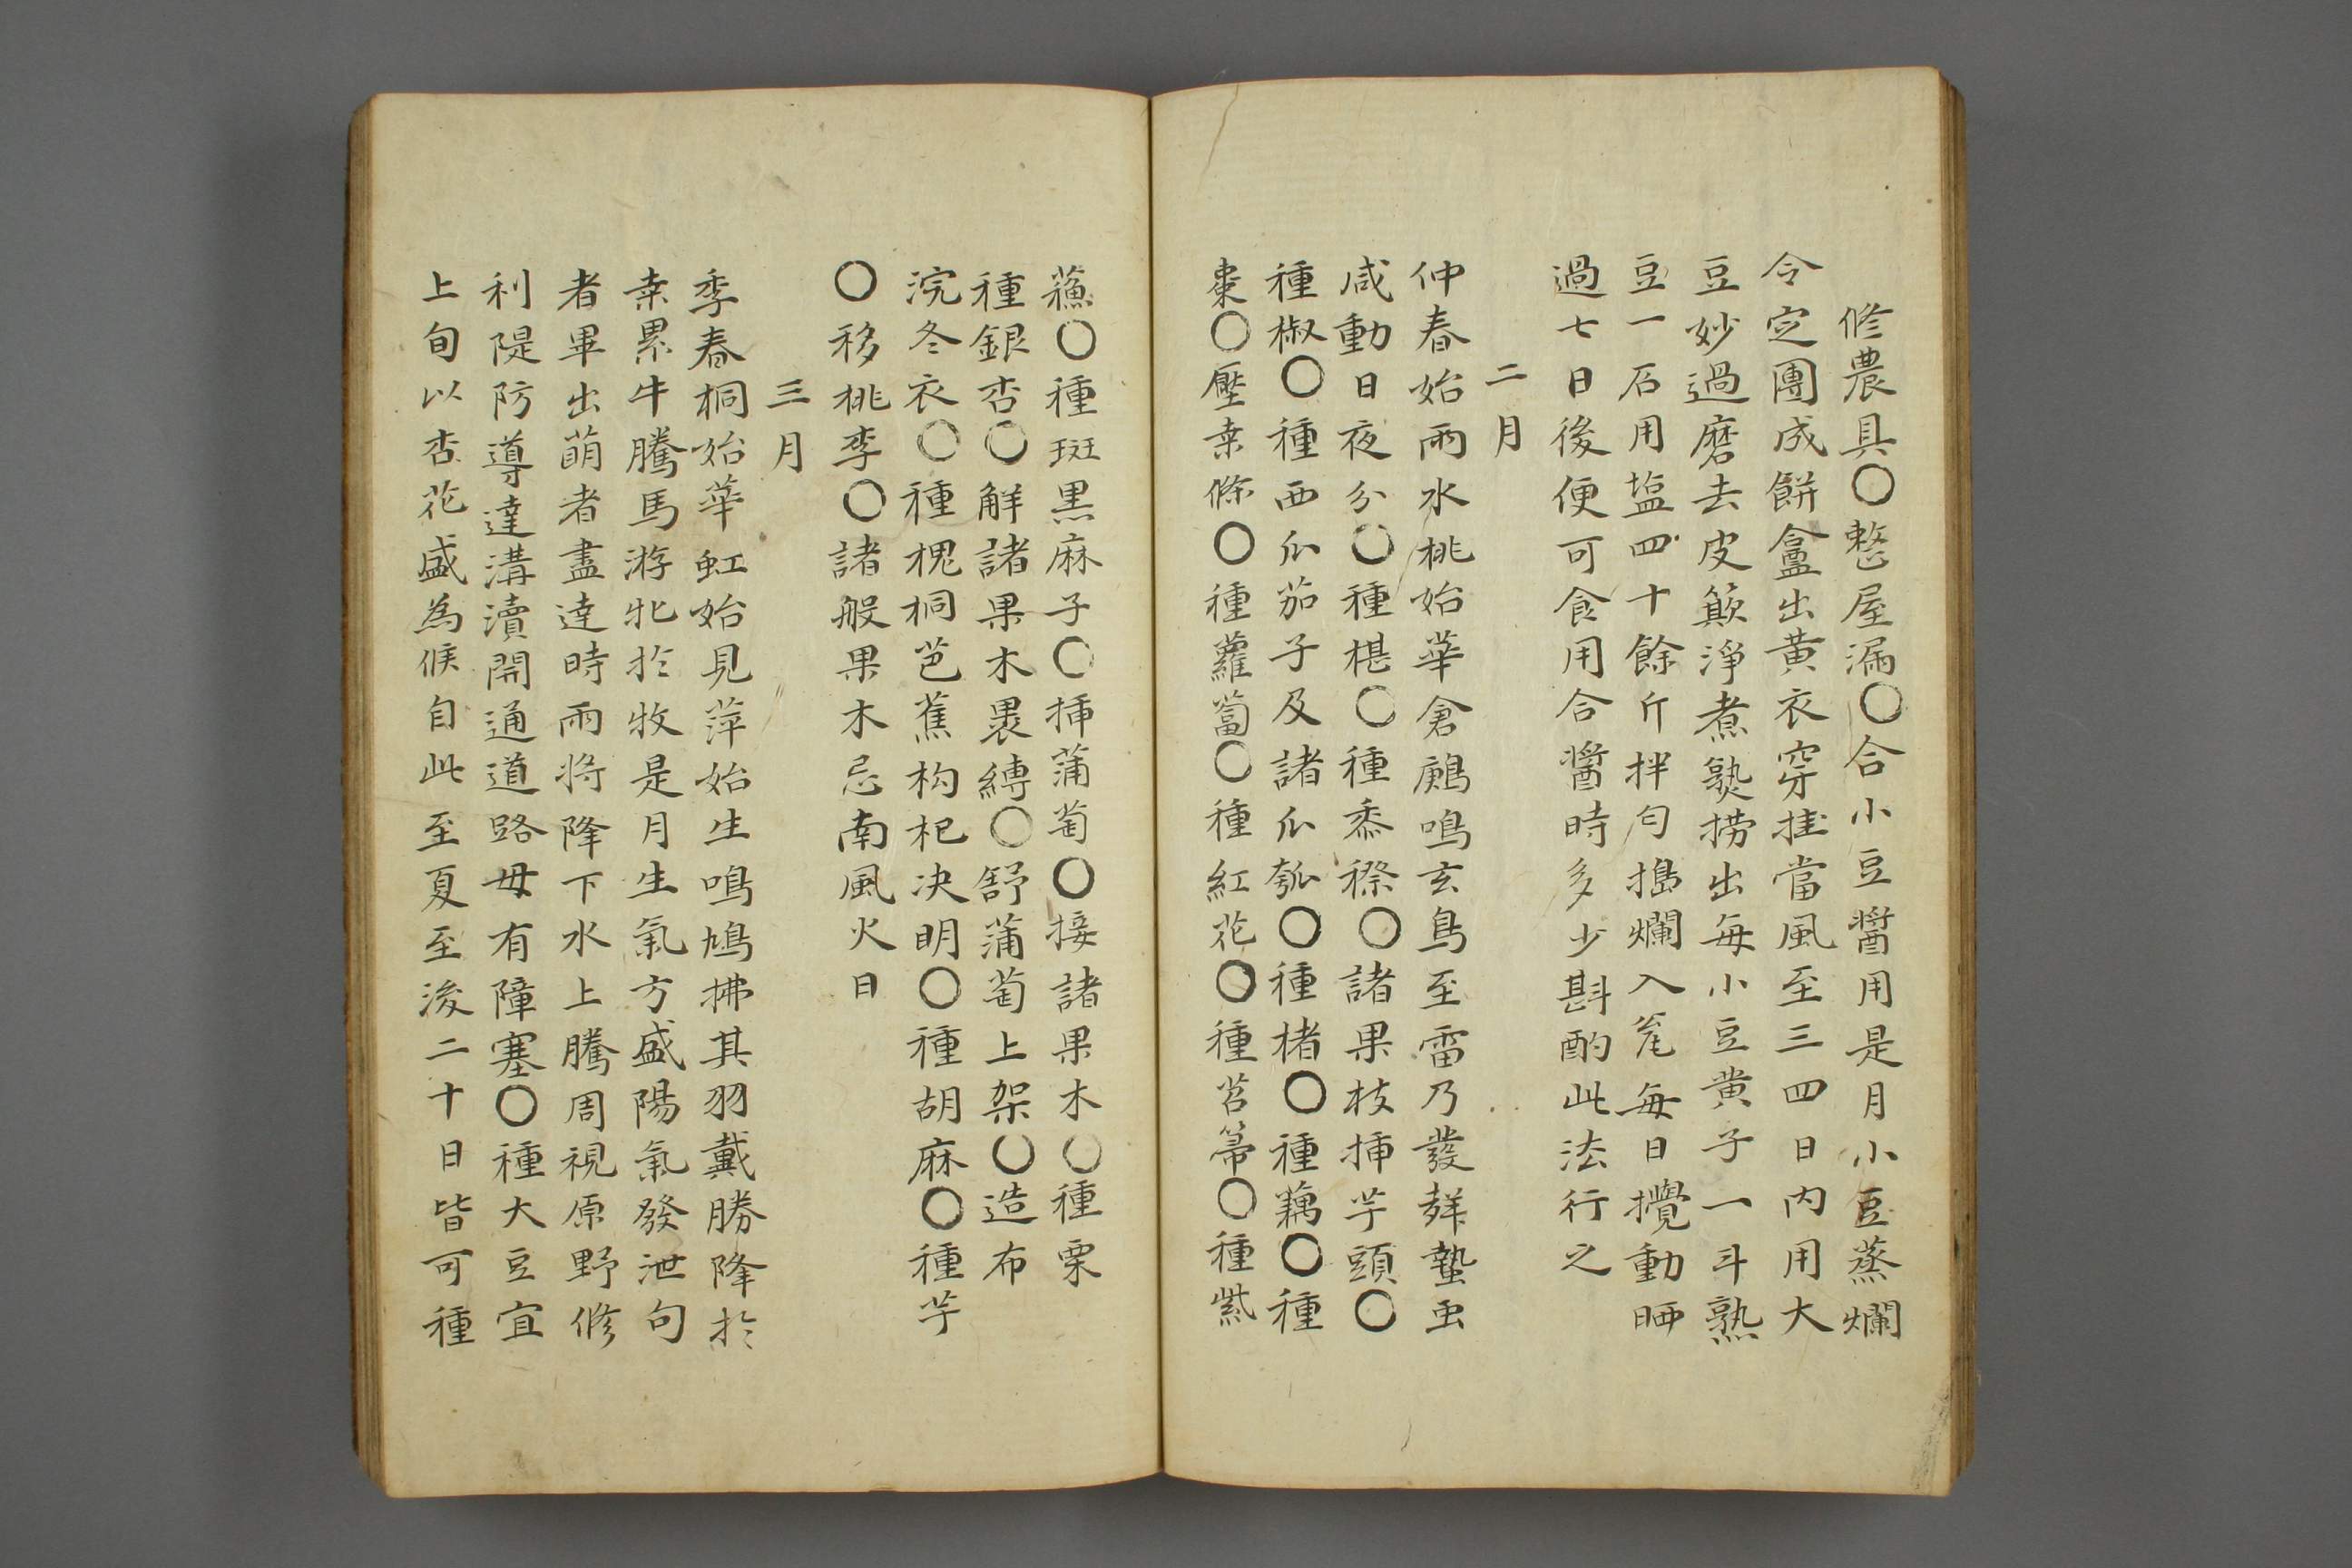 修農具○整屋漏○合小豆醬用是月小豆蒸爛
令定團成餅盦出黃衣穿挂當風至三四日内用大
豆妙過磨去皮簸淨煮𤍠撈出每小豆黄子一斗熟
豆一石用塩四十餘斤拌勻搗爛入瓮每日攪動晒
過七日後便可食用合醬時多少斟酌此法行之
二月
仲春始雨水桃始華倉鷓鳴玄鳥至雷乃發聲蟄虫
咸動日夜分○種椹○種黍穄○諸果枝挿芋頭○
種椒○種西瓜茄子及諸瓜瓠○種楮○種藕○種
棗○壓桒條○種蘿蔔○種紅花○種苕箒○種紫
蘓○種斑黒麻子○挿蒲萄○接諸果木○種栗
種銀杏○觧諸果木裹縛○舒蒲萄上架○造布
浣冬衣○種槐桐芭蕉枸杞决明○種胡麻○種芋
○移桃李○諸般果木忌南風火日
三月
季春桐始華虹始見萍始生鳴鳩拂其羽戴勝降扵
桒累牛騰馬游牝扵牧是月生氣方盛陽氣發泄句
者畢出萌者盡達時雨将降下水上騰周視原野修
利隄防導達溝瀆開通道路毋有障塞○種大豆宜
上旬以杏花盛為候自此至夏至後二十日皆可種